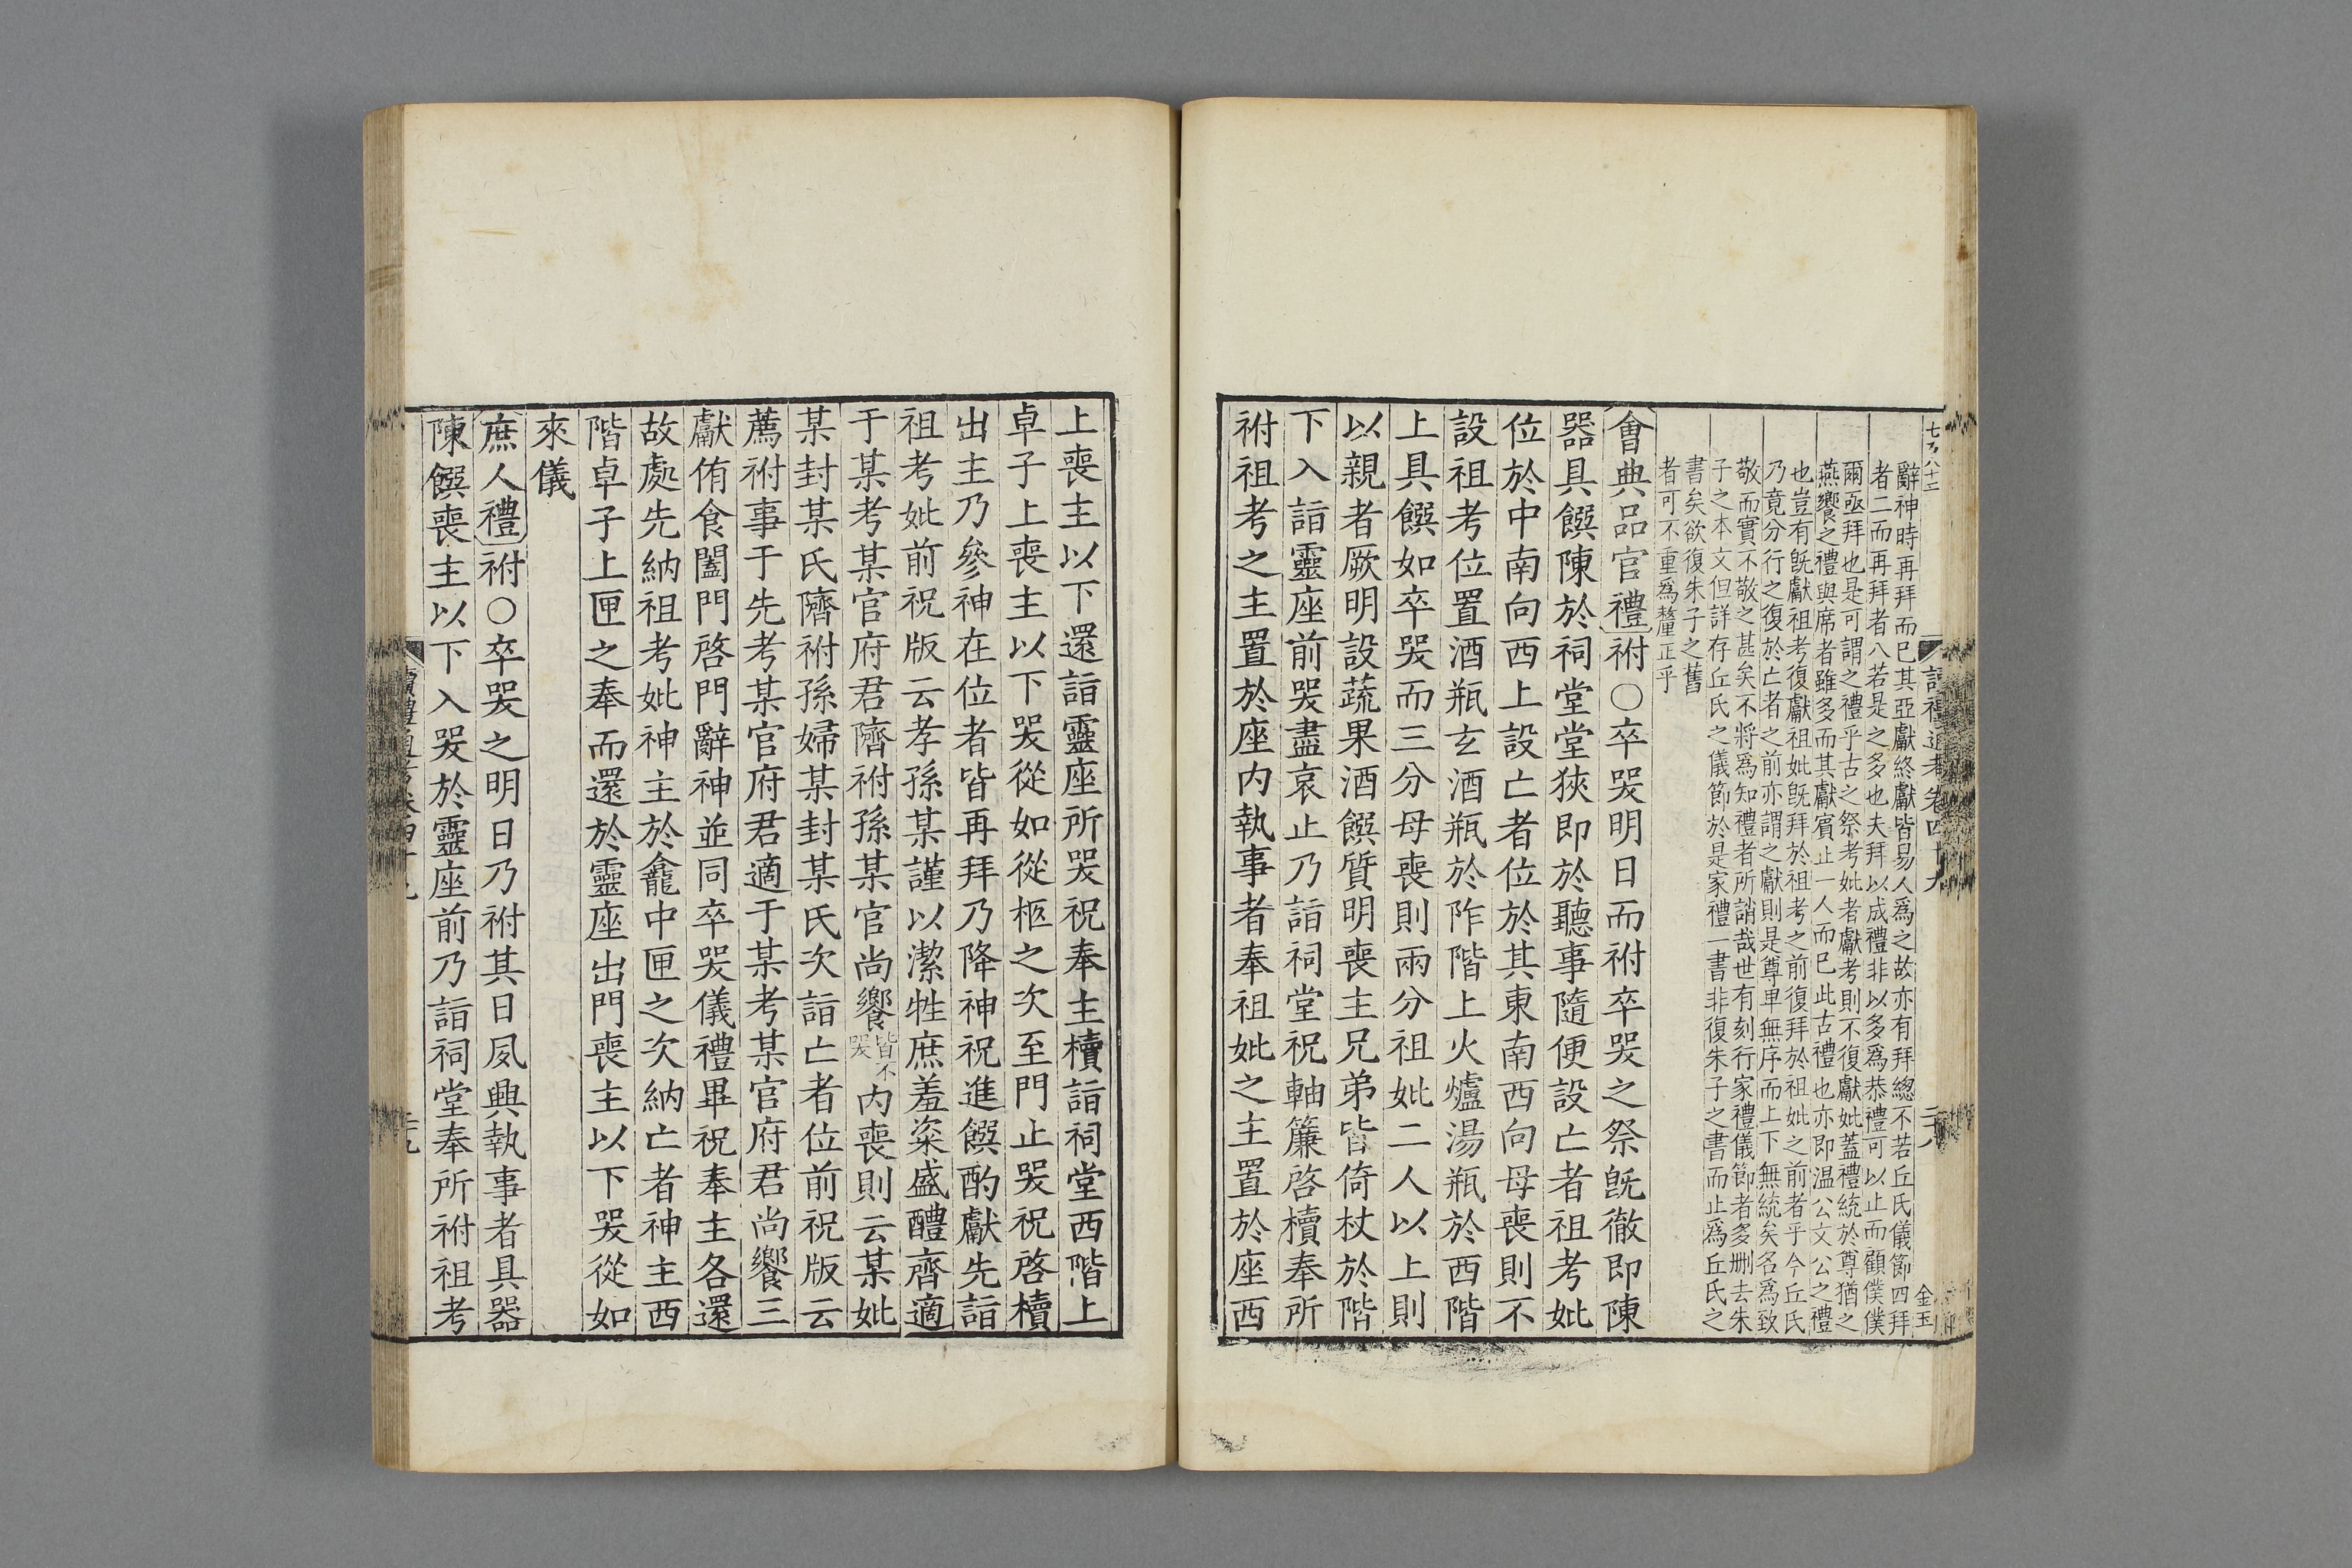 辭神時再拜而已其亞獻終獻皆易人爲之故亦有拜總不若丘氏儀節四拜
者二而再拜者八若是之多也夫拜以成禮非以多爲恭禮可以止而顧僕僕
爾亟拜也是可謂之禮乎古之祭考妣者獻考則不復獻妣蓋禮統於尊猶之
燕饗之禮與席者雖多而其獻賓止一人而已此古禮也亦即温公文公之禮
也豈有旣獻祖考復獻祖妣旣拜於祖考之前復拜於祖妣之前者乎今丘氏
乃竟分行之復於亡者之前亦謂之獻則是尊卑無序而上下無統矣名爲致
敬而實不敬之甚矣不將爲知禮者所誚哉世有刻行家禮儀節者多删去朱
子之本文但詳存丘氏之儀節於是家禮一書非復朱子之書而止爲丘氏之
書矣欲復朱子之舊
者可不重爲釐正乎
會典品官禮祔〇卒哭明日而祔卒哭之祭旣徹即陳
器具饌陳於祠堂堂狹即於聽事隨便設亡者祖考妣
位於中南向西上設亡者位於其東南西向母喪則不
設祖考位置酒瓶玄酒瓶於阼階上火爐湯瓶於西階
上具饌如卒哭而三分母喪則兩分祖妣二人以上則
以親者厥明設蔬果酒饌質明喪主兄弟皆倚杖於階
下入詣靈座前哭盡哀止乃詣祠堂祝軸簾啓櫝奉所
祔祖考之主置於座内執事者奉祖妣之主置於座西
上喪主以下還詣靈座所哭祝奉主櫝詣祠堂西階上
卓子上喪主以下哭從如從柩之次至門止哭祝啓櫝
出主乃參神在位者皆再拜乃降神祝進饌酌獻先詣
祖考妣前祝版云孝孫某謹以潔牲庶羞粢盛醴齊適
于某考某官府君隮祔孫某官尚饗皆不哭内喪則云某妣
某封某氏隮祔孫婦某封某氏次詣亡者位前祝版云
薦祔事于先考某官府君適于某考某官府君尚饗三
獻侑食闔門啓門辭神並同卒哭儀禮畢祝奉主各還
故處先納祖考妣神主於龕中匣之次納亡者神主西
階卓子上匣之奉而還於靈座出門喪主以下哭從如
來儀
庶人禮祔〇卒哭之明日乃祔其日夙興執事者具器
陳饌喪主以下入哭於靈座前乃詣祠堂奉所祔祖考